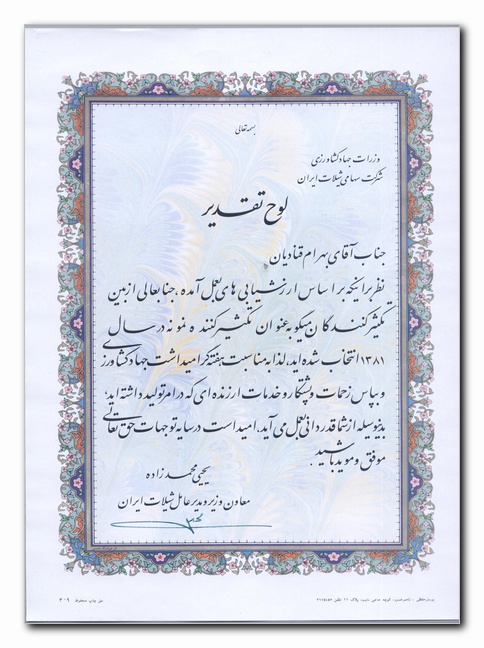 بسمه تعالی
وزرات جهاد کشاورزی
شرکت سهامی شیلات ایران
لوح تقدیر
جناب آقای بهرام قنادیان
نظر براینکه بر اساس ارزشیابی های بعمل آمده، جنابعالی از بین
تکثیر کنندگان میگو به عنوان تکثیر کننده نمونه در سال
۱۳۸۱ انتخاب شده اید، لذا به مناسبت هفته گرامیداشت جهاد کشاورزی
و بپاس زحمات و پشتکار و خدمات ارزنده ای که در امر تولید داشته اید؛
بدینوسیله از شما قدردانی بعمل می آید. امید است در سایه توجهات حق تعالی
موفق و موید باشید.
یحیی محمد زاده
معاون وزیر و مدیر عامل شیلات ایران
حق چاپ محفوظ ۳۰۹